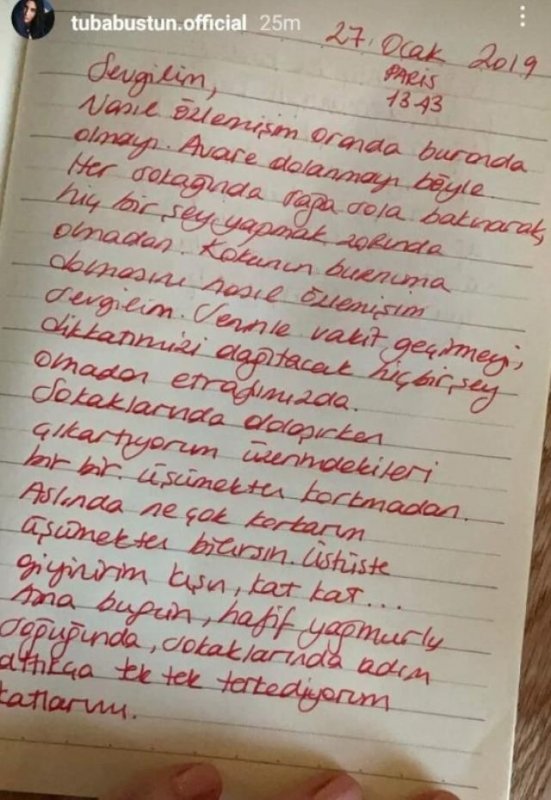 tubabustun.official 25m
27. Ocak 2019
PARIS
13.43
Sevgilim,
Nasıl özlemişim oranda buranda
olmayı. Avare dolanmayı böyle.
Her sokağında sağa sola bakınarak,
hiç bir şey yapmak zorunda
olmadan. Kokunun burnuma
dolmasını nasıl özlemişim
sevgilim. Seninle vakit geçirmeyi,
dikkatimizi dağıtacak hiçbir şey
olmadan etrafımızda.
Sokaklarında dolaşırken
çıkartıyorum üzerimdekileri
bir bir. üşümekten korkmadan.
Aslında ne çok korkarım
üşümekten bilirsin. üstüste
giyinirim kışın, kat kat...
Ama bugün, hafif yağmurlu
soğuğunda, sokaklarında adım
attıkça tek tek terkediyorum
katlarımı.